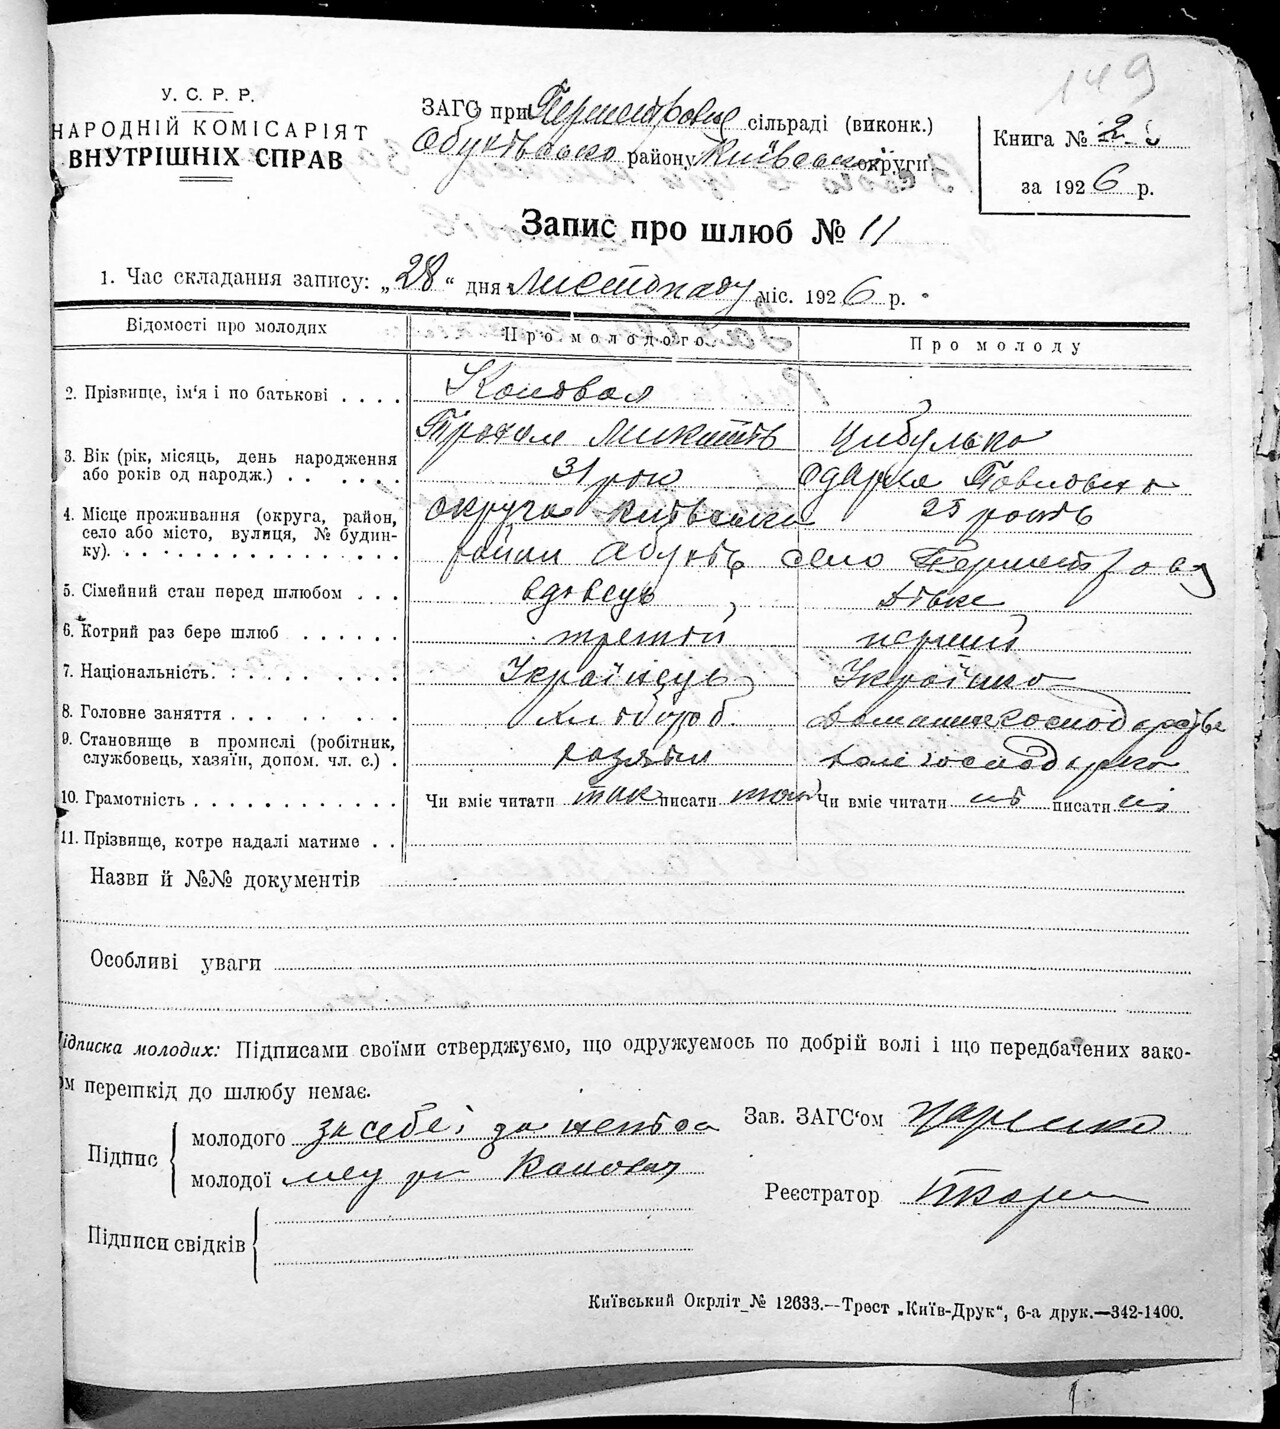 149
У. С. Р. Р.
НАРОДНІЙ КОМІСАРІЯТ
ВНУТРІШНІХ СПРАВ
ЗАГС при сільраді (виконк.)
району округи.
Книга № 2
за 1926 р.
Запис про шлюб № 11
1. Час складання запису: „28“ дня Листопаду міс. 1926 р.
Відомості про молодих
Про молодого
Про молоду
2. Прізвище, ім'я і по батькові . . . .
Коновал
Трохим Микит Цибулько
3. Вік (рік, місяць, день народження
або років од народж.) . . . . . . .
31 рок Одарка Павловна
4. Місце проживання (округа, район,
село або місто, вулиця, № будин-
ку). . . . . . . . . . . . . . . .
округа 25 років
район село
5. Сімейний стан перед шлюбом . . .
вдовець
6. Котрий раз бере шлюб . . . . . .
третій перший
7. Національність. . . . . . . . . .
Українець Українка
8. Головне заняття . . . . . . . .
хлібороб
9. Становище в промислі (робітник,
службовець, хазяїн, допом. чл. с.) .
хазяїн
10. Грамотність . . . . . . . . . . .
Чи вміє читати так писати так Чи вміє читати ні писати ні
11. Прізвище, котре надалі матиме . .
Назви й №№ документів
Особливі уваги
Підписка молодих: Підписами своїми стверджуємо, що одружуємось по добрій волі і що передбачених зако-
ом перешкід до шлюбу немає.
Підпис
молодого за себе і за
молодої Коновал
Зав. ЗАГС'ом
Реєстратор
Підписи свідків
Київський Окрліт_№ 12633.—Трест „Київ-Друк“, 6-а друк.—342-1400.